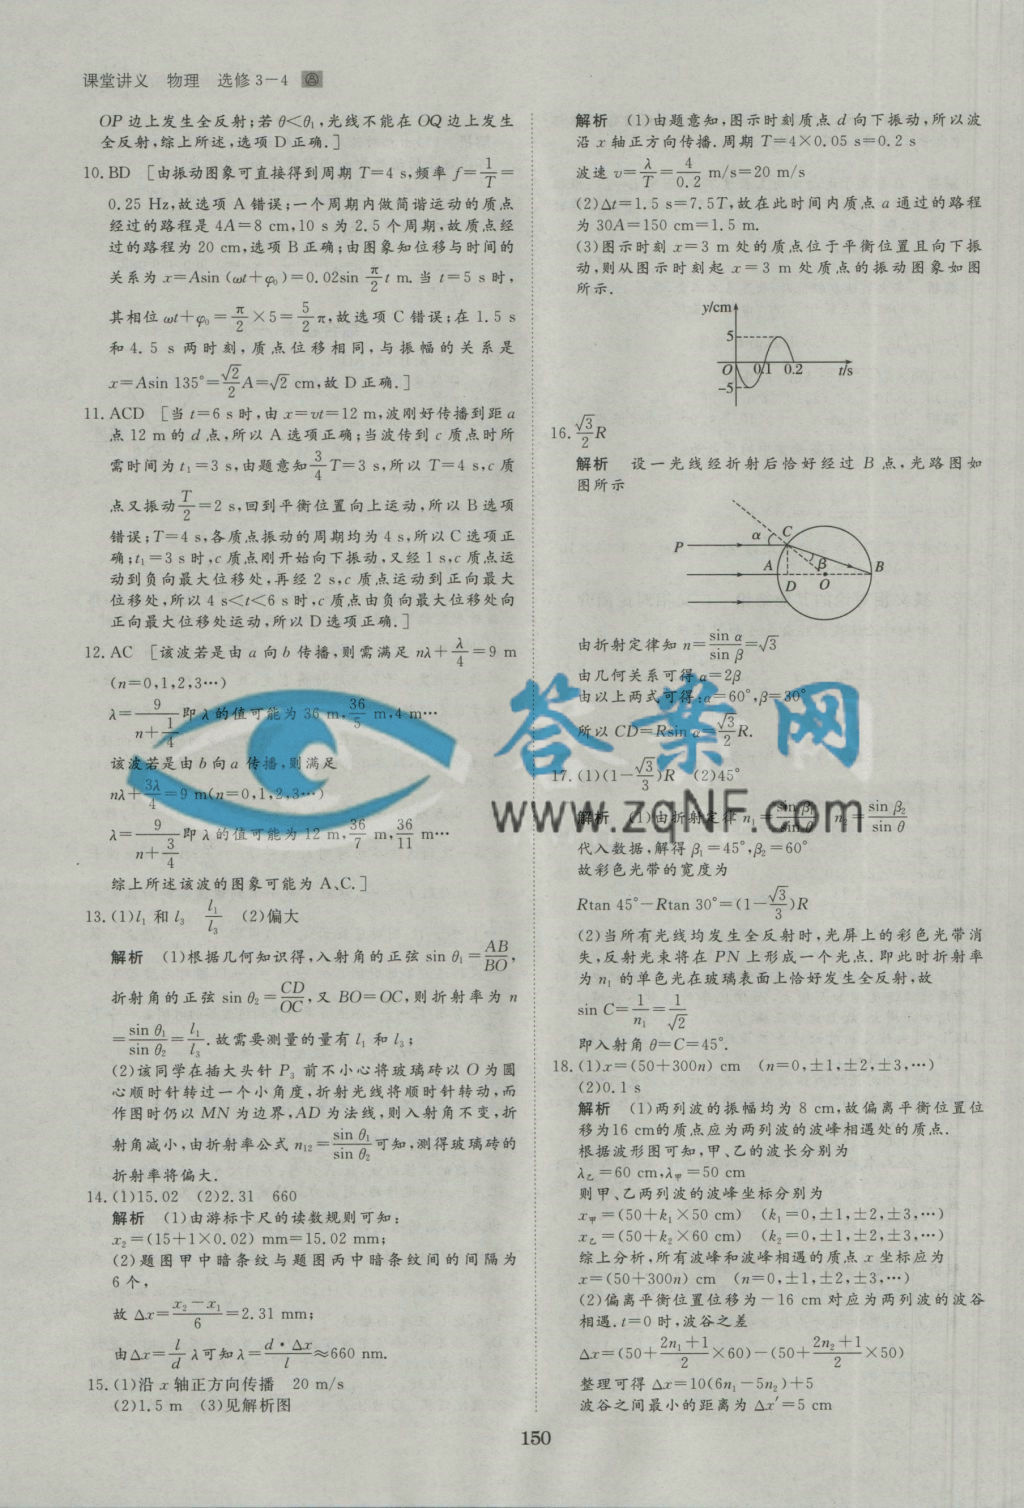 课堂讲义 物理 选修3-4
OP边上发生全反射;若θ<θ₁,光线不能在OQ边上发生
全反射,综上所述,选项D正确.]
10.BD [由振动图象可直接得到周期T=4 s,频率f=1/T=
0.25 Hz,故选项A错误;一个周期内做简谐运动的质点
经过的路程是4A=8 cm,10 s为2.5个周期,故质点经
过的路程为20 cm,选项B正确;由图象知位移与时间的
关系为x=Asin(ωt+φ₀)=0.02sin π/2 t m.当t=5 s时,
其相位ωt+φ₀=π/2×5=5/2π,故选项C错误;在1.5 s
和4.5 s两时刻,质点位移相同,与振幅的关系是
x=Asin 135°=√2/2A=√2 cm,故D正确.]
11.ACD [当t=6 s时,由x=vt=12 m,波刚好传播到距a
点12 m的d点,所以A选项正确;当波传到c质点时所
需时间为t₁=3 s,由题意知3/4T=3 s,所以T=4 s,c质
点又振动T/2=2 s,回到平衡位置向上运动,所以B选项
错误;T=4 s,各质点振动的周期均为4 s,所以C选项正
确;t₁=3 s时,c质点刚开始向下振动,又经1 s,c质点运
动到负向最大位移处,再经2 s,c质点运动到正向最大
位移处,所以4 s<t<6 s时,c质点由负向最大位移处向
正向最大位移处运动,所以D选项正确.]
12.AC [该波若是由a向b传播,则需满足nλ+λ/4=9 m
(n=0,1,2,3…)
λ=9/(n+1/4)即λ的值可能为36 m,36/5 m,4 m…
该波若是由b向a传播,则满足
nλ+3λ/4=9 m(n=0,1,2,3…)
λ=9/(n+3/4)即λ的值可能为12 m,36/7 m,36/11 m…
综上所述该波的图象可能为A、C.]
13.(1)l₁和l₃ l₁/l₃ (2)偏大
解析 (1)根据几何知识得,入射角的正弦sin θ₁=AB/BO,
折射角的正弦sin θ₂=CD/OC,又BO=OC,则折射率为n
=sin θ₁/sin θ₂=l₁/l₃.故需要测量的量有l₁和l₃;
(2)该同学在插大头针P₃前不小心将玻璃砖以O为圆
心顺时针转过一个小角度,折射光线将顺时针转动,而
作图时仍以MN为边界,AD为法线,则入射角不变,折
射角减小,由折射率公式n₁₂=sin θ₁/sin θ₂可知,测得玻璃砖的
折射率将偏大.
14.(1)15.02 (2)2.31 660
解析 (1)由游标卡尺的读数规则可知:
x₂=(15+1×0.02) mm=15.02 mm;
(2)题图甲中暗条纹与题图丙中暗条纹间的间隔为
6个,
故Δx=(x₂-x₁)/6=2.31 mm;
由Δx=l/d λ可知λ=d·Δx/l≈660 nm.
15.(1)沿x轴正方向传播 20 m/s
(2)1.5 m (3)见解析图
解析 (1)由题意知,图示时刻质点d向下振动,所以波
沿x轴正方向传播.周期T=4×0.05 s=0.2 s
波速v=λ/T=4/0.2 m/s=20 m/s
(2)Δt=1.5 s=7.5T,故在此时间内质点a通过的路程
为30A=150 cm=1.5 m.
(3)图示时刻x=3 m处的质点位于平衡位置且向下振
动,则从图示时刻起x=3 m处质点的振动图象如图
所示.
y/cm
5
O 0.1 0.2 t/s
-5
16.√3/2R
解析 设一光线经折射后恰好经过B点,光路图如
图所示
α C
P
A β B
D O
由折射定律知n=sin α/sin β=√3
由几何关系可得α=2β
由以上两式可得:α=60°,β=30°
所以CD=Rsin α=√3/2R.
17.(1)(1-√3/3)R (2)45°
解析 (1)由折射定律n₁=sin β₁/sin θ,n₂=sin β₂/sin θ
代入数据,解得β₁=45°,β₂=60°
故彩色光带的宽度为
Rtan 45°-Rtan 30°=(1-√3/3)R
(2)当所有光线均发生全反射时,光屏上的彩色光带消
失,反射光束将在PN上形成一个光点.即此时折射率
为n₁的单色光在玻璃表面上恰好发生全反射,故
sin C=1/n₁=1/√2
即入射角θ=C=45°.
18.(1)x=(50+300n) cm (n=0,±1,±2,±3,…)
(2)0.1 s
解析 (1)两列波的振幅均为8 cm,故偏离平衡位置位
移为16 cm的质点应为两列波的波峰相遇处的质点.
根据波形图可知,甲、乙的波长分别为
λ乙=60 cm,λ甲=50 cm
则甲、乙两列波的波峰坐标分别为
x甲=(50+k₁×50 cm) (k₁=0,±1,±2,±3,…)
x乙=(50+k₂×60 cm) (k₂=0,±1,±2,±3,…)
综上分析,所有波峰和波峰相遇的质点x坐标应为
x=(50+300n) cm (n=0,±1,±2,±3,…)
(2)偏离平衡位置位移为-16 cm对应为两列波的波谷
相遇.t=0时,波谷之差
Δx=(50+(2n₁+1)/2×60)-(50+(2n₂+1)/2×50)
整理可得Δx=10(6n₁-5n₂)+5
波谷之间最小的距离为Δx′=5 cm
答案网
www.zqNF.com
150